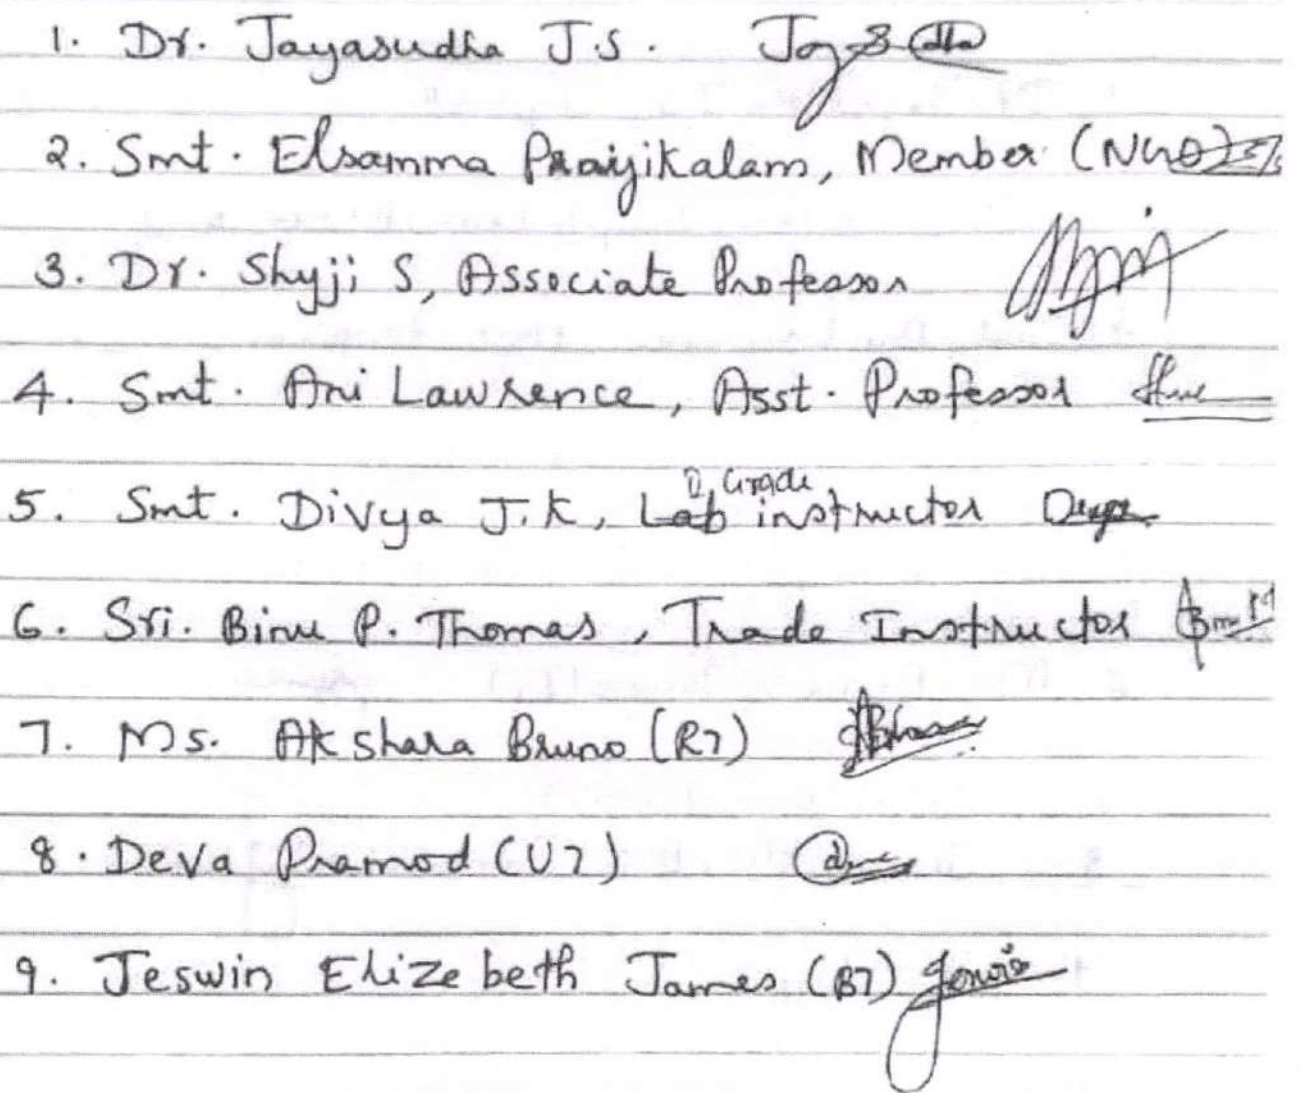 1. Dr. Jayasudha J.S.
2. Smt. Elsamma Praiyikalam, Member (NGO)
3. Dr. Shyji S, Associate Professor
4. Smt. Ani Lawrence, Asst. Professor
Grade
5. Smt. Divya J.K, Lab instructor Divya
6. Sri. Binu P. Thomas, Trade Instructor
7. Ms. Akshara Bruno (R7)
8. Deva Pramod (U7)
9. Jeswin Elizebeth James (B7) Jeswin